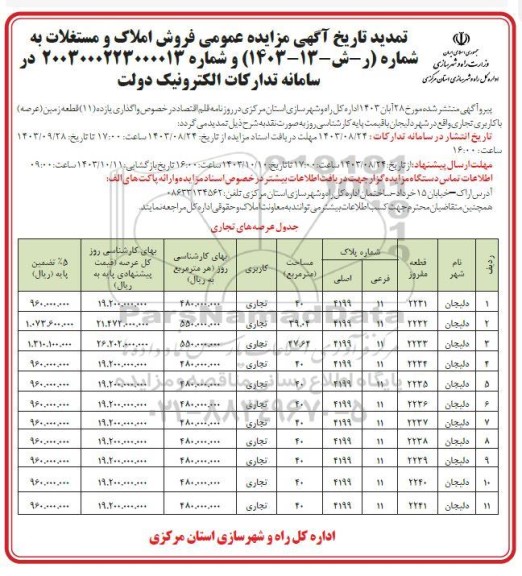 جمهوری اسلامی ایران
وزارت راه و شهرسازی
اداره کل راه و شهرسازی استان مرکزی
تمدید تاریخ آگهی مزایده عمومی فروش املاک و مستغلات به
شماره (ر-ش-۱۳-۱۴۰۳) و شماره ۲۰۰۳۰۰۰۲۲۳۰۰۰۰۱۳ در
سامانه تدارکات الکترونیک دولت
پیرو آگهی منتشر شده مورخ ۲۸ آبان ۱۴۰۳ اداره کل راه و شهرسازی استان مرکزی در روزنامه قلم اقتصاد در خصوص واگذاری یازده (۱۱) قطعه زمین (عرصه)
با کاربری تجاری واقع در شهر دلیجان با قیمت پایه کارشناسی روز به صورت نقد به شرح ذیل تمدید می گردد:
تاریخ انتشار در سامانه تدارکات: ۱۴۰۳/۰۸/۲۴ مهلت دریافت اسناد مزایده از تاریخ: ۱۴۰۳/۰۸/۲۴ ساعت: ۱۷:۰۰ تا تاریخ: ۱۴۰۳/۰۹/۲۸
ساعت: ۱۶:۰۰
مهلت ارسال پیشنهاد: از تاریخ: ۱۴۰۳/۰۸/۲۴ ساعت: ۱۷:۰۰ تا تاریخ ۱۴۰۳/۱۰/۱۰ ساعت: ۱۶:۰۰ تاریخ بازگشایی: ۱۴۰۳/۱۰/۱۱ ساعت: ۰۹:۰۰
اطلاعات تماس دستگاه مزایده گزار جهت دریافت اطلاعات بیشتر در خصوص اسناد مزایده و ارائه پاکت های الف:
آدرس اراک - خیابان ۱۵ خرداد - ساختمان اداره کل راه و شهرسازی استان مرکزی تلفن: ۰۸۶۳۳۱۳۴۵۶۲
همچنین متقاضیان محترم جهت کسب اطلاعات بیشتر می توانند به معاونت املاک و حقوقی اداره کل مراجعه نمایند.
جدول عرصه های تجاری
ردیف | نام شهر | قطعه مفروز | شماره پلاک فرعی | اصلی | مساحت (مترمربع) | کاربری | بهای کارشناسی روز (هر مترمربع به ریال) | بهای کارشناسی روز کل عرصه (قیمت پیشنهادی پایه به ریال) | ۵٪ تضمین پایه (ریال)
۱ | دلیجان | ۲۲۳۱ | ۱۱ | ۴۱۹۹ | ۴۰ | تجاری | ۴۸۰.۰۰۰.۰۰۰ | ۱۹.۲۰۰.۰۰۰.۰۰۰ | ۹۶۰.۰۰۰.۰۰۰
۲ | دلیجان | ۲۲۳۲ | ۱۱ | ۴۱۹۹ | ۳۹.۰۴ | تجاری | ۵۵۰.۰۰۰.۰۰۰ | ۲۱.۴۷۲.۰۰۰.۰۰۰ | ۱.۰۷۳.۶۰۰.۰۰۰
۳ | دلیجان | ۲۲۳۳ | ۱۱ | ۴۱۹۹ | ۴۷.۶۴ | تجاری | ۵۵۰.۰۰۰.۰۰۰ | ۲۶.۲۰۲.۰۰۰.۰۰۰ | ۱.۳۱۰.۱۰۰.۰۰۰
۴ | دلیجان | ۲۲۳۴ | ۱۱ | ۴۱۹۹ | ۴۰ | تجاری | ۴۸۰.۰۰۰.۰۰۰ | ۱۹.۲۰۰.۰۰۰.۰۰۰ | ۹۶۰.۰۰۰.۰۰۰
۵ | دلیجان | ۲۲۳۵ | ۱۱ | ۴۱۹۹ | ۴۰ | تجاری | ۴۸۰.۰۰۰.۰۰۰ | ۱۹.۲۰۰.۰۰۰.۰۰۰ | ۹۶۰.۰۰۰.۰۰۰
۶ | دلیجان | ۲۲۳۶ | ۱۱ | ۴۱۹۹ | ۴۰ | تجاری | ۴۸۰.۰۰۰.۰۰۰ | ۱۹.۲۰۰.۰۰۰.۰۰۰ | ۹۶۰.۰۰۰.۰۰۰
۷ | دلیجان | ۲۲۳۷ | ۱۱ | ۴۱۹۹ | ۴۰ | تجاری | ۴۸۰.۰۰۰.۰۰۰ | ۱۹.۲۰۰.۰۰۰.۰۰۰ | ۹۶۰.۰۰۰.۰۰۰
۸ | دلیجان | ۲۲۳۸ | ۱۱ | ۴۱۹۹ | ۴۰ | تجاری | ۴۸۰.۰۰۰.۰۰۰ | ۱۹.۲۰۰.۰۰۰.۰۰۰ | ۹۶۰.۰۰۰.۰۰۰
۹ | دلیجان | ۲۲۳۹ | ۱۱ | ۴۱۹۹ | ۴۰ | تجاری | ۴۸۰.۰۰۰.۰۰۰ | ۱۹.۲۰۰.۰۰۰.۰۰۰ | ۹۶۰.۰۰۰.۰۰۰
۱۰ | دلیجان | ۲۲۴۰ | ۱۱ | ۴۱۹۹ | ۴۰ | تجاری | ۴۸۰.۰۰۰.۰۰۰ | ۱۹.۲۰۰.۰۰۰.۰۰۰ | ۹۶۰.۰۰۰.۰۰۰
۱۱ | دلیجان | ۲۲۴۱ | ۱۱ | ۴۱۹۹ | ۴۰ | تجاری | ۴۸۰.۰۰۰.۰۰۰ | ۱۹.۲۰۰.۰۰۰.۰۰۰ | ۹۶۰.۰۰۰.۰۰۰
ParsNamadData
پایگاه اطلاع رسانی مناقصه و مزایده
۰۲۱-۸۸۳۴۹۶۷۰-۵
اداره کل راه و شهرسازی استان مرکزی